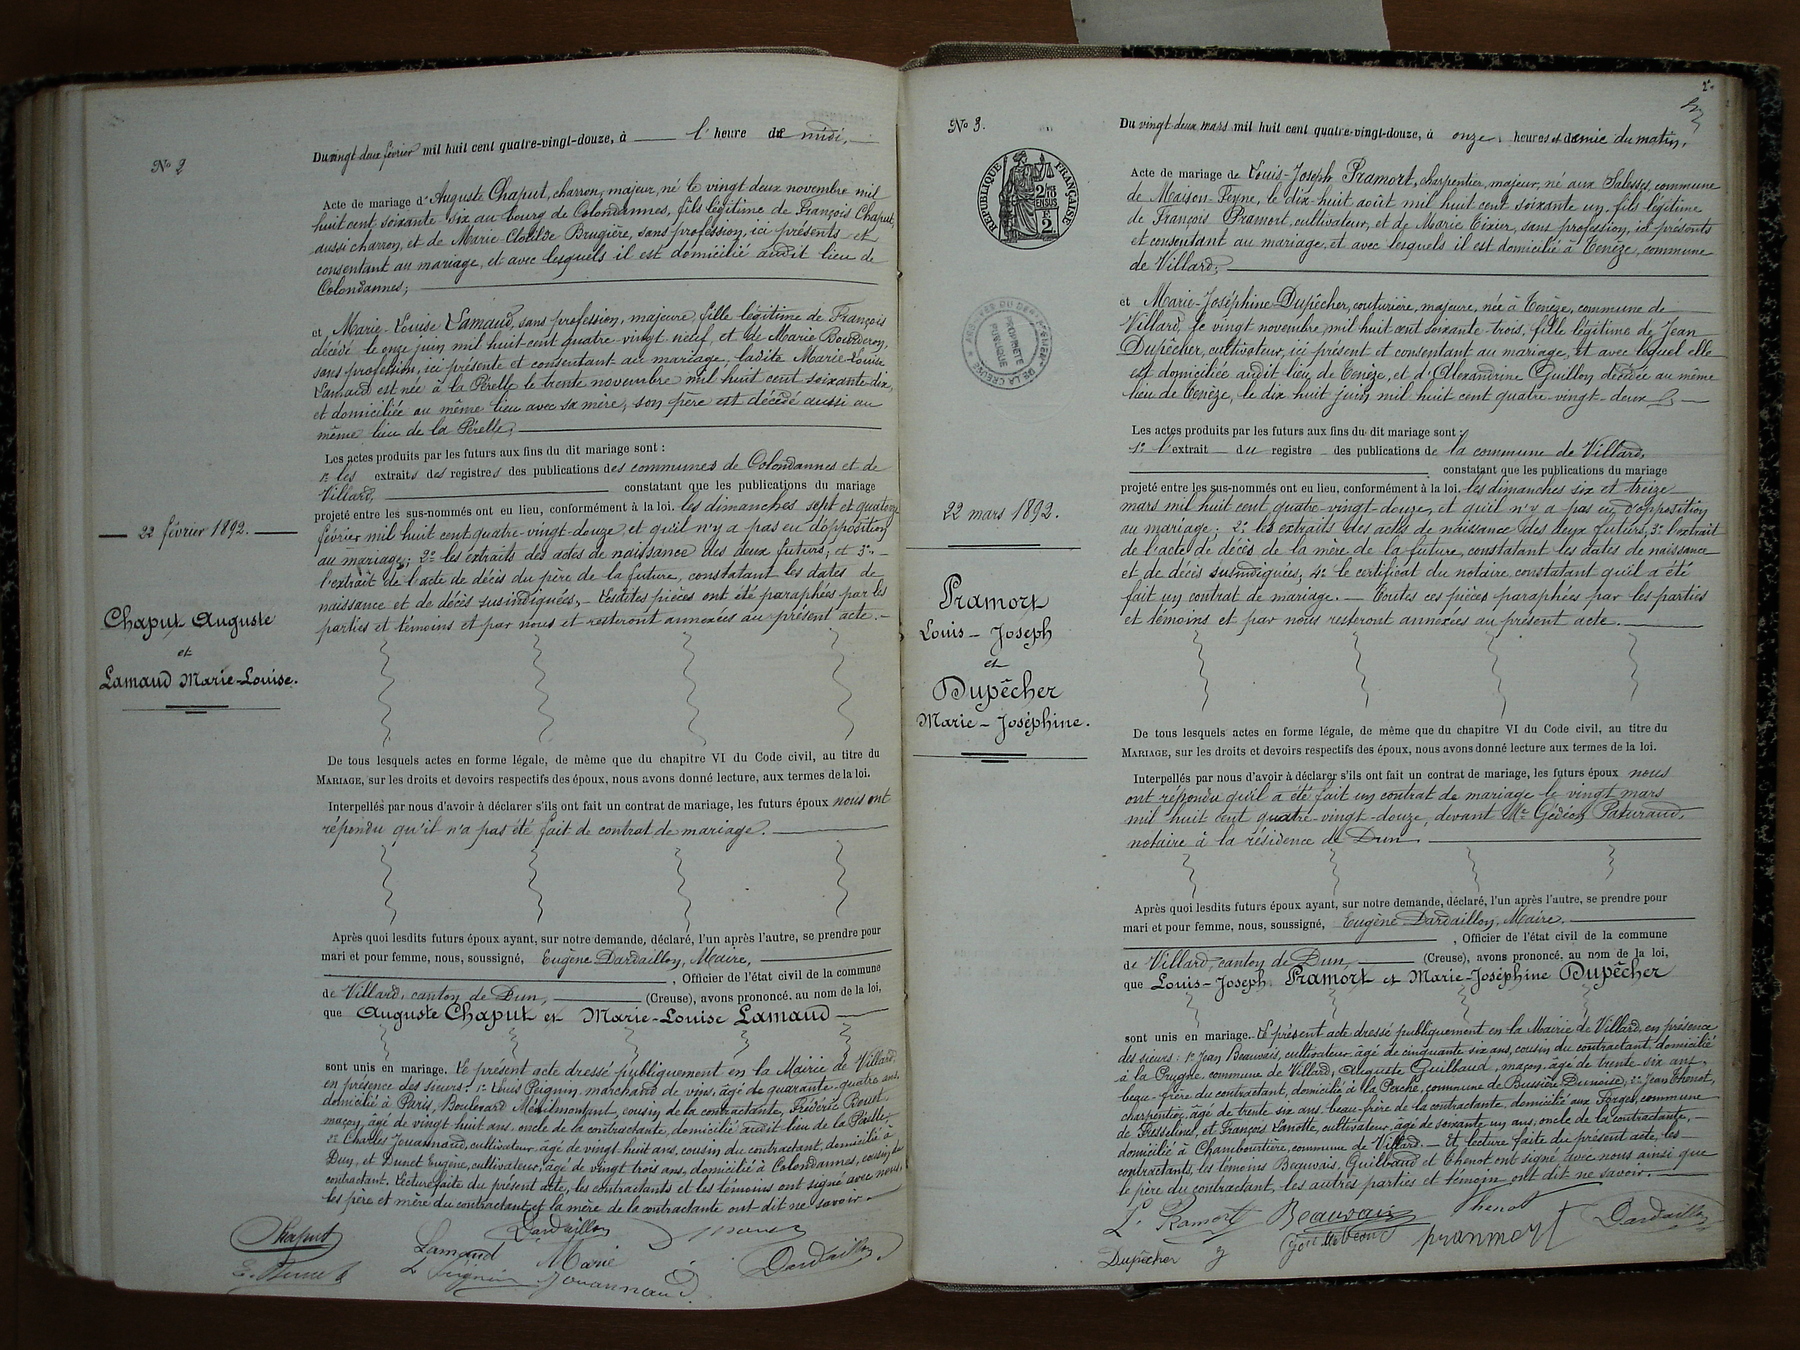 N° 2
Du vingt deux février mil huit cent quatre-vingt-douze, à l' heure de midi,
Acte de mariage d'Auguste Chaput, charron, majeur, né le vingt deux novembre mil
huit cent soixante six au bourg de Colondannes, fils légitime de François Chaput,
aussi charron, et de Marie Clotilde Brugière, sans profession, ici présents et
consentant au mariage, et avec lesquels il est domicilié audit lieu de
Colondannes;
et Marie-Louise Lamaud, sans profession, majeure, fille légitime de François
décédé le onze juin mil huit cent quatre-vingt neuf, et de Marie
sans profession, ici présente et consentant au mariage, ladite Marie-Louise
Lamaud est née à la Pérelle le trente novembre mil huit cent soixante dix,
et domiciliée au même lieu avec sa mère, son père est décédé aussi au
même lieu de la Pérelle;
Les actes produits par les futurs aux fins du dit mariage sont :
1° les extraits des registres des publications des communes de Colondannes et de
Villard, constatant que les publications du mariage
projeté entre les sus-nommés ont eu lieu, conformément à la loi, les dimanches sept et quatorze
février mil huit cent quatre-vingt-douze et qu'il n'y a pas eu d'opposition
au mariage; 2° les extraits des actes de naissance des deux futurs; et 3°
l'extrait de l'acte de décès du père de la future, constatant les dates de
naissance et de décès susindiquées, - Lesdites pièces ont été paraphées par les
parties et témoins et par nous et resteront annexées au présent acte.-
22 février 1892.
Chaput Auguste
et
Lamaud Marie-Louise.
De tous lesquels actes en forme légale, de même que du chapitre VI du Code civil, au titre du
MARIAGE, sur les droits et devoirs respectifs des époux, nous avons donné lecture, aux termes de la loi.
Interpellés par nous d'avoir à déclarer s'ils ont fait un contrat de mariage, les futurs époux nous ont
répondu qu'il n'a pas été fait de contrat de mariage.
Après quoi lesdits futurs époux ayant, sur notre demande, déclaré, l'un après l'autre, se prendre pour
mari et pour femme, nous, soussigné, Eugène Dardaillon, Maire,
, Officier de l'état civil de la commune
de Villard, canton de Dun, (Creuse), avons prononcé, au nom de la loi,
que Auguste Chaput et Marie-Louise Lamaud
sont unis en mariage. Le présent acte dressé publiquement en la Mairie de Villard,
en présence des sieurs: 1° Louis Peignin, marchand de vins, âgé de quarante-quatre ans,
domicilié à Paris, Boulevard Ménilmontant, cousin de la contractante, Frédéric
maçon, âgé de vingt huit ans, oncle de la contractante, domicilié audit lieu de la Pérelle,
2° Charles Jouannaud, cultivateur, âgé de vingt huit ans, cousin du contractant, domicilié à
Dun, et Dunet Eugène, cultivateur, âgé de vingt trois ans, domicilié à Colondannes, cousin du
contractant. Lecture faite du présent acte, les contractants et les témoins ont signé avec nous,
les père et mère du contractant et la mère de la contractante ont dit ne savoir.
Chaput
Lamaud Marie
Dardaillon
E. Dunet
L. Peignin
Jouannaud
Dardaillon
N° 3.
RÉPUBLIQUE FRANÇAISE
ARCHIVES DU DÉPARTEMENT DE LA CREUSE
PROPRIÉTÉ PUBLIQUE
Du vingt deux mars mil huit cent quatre-vingt-douze, à onze heures et demie du matin,
Acte de mariage de Louis-Joseph Pramort, charpentier, majeur, né aux Salesses, commune
de Maison-Feyne, le dix-huit août mil huit cent soixante un, fils légitime
de François Pramort, cultivateur, et de Marie Tixier, sans profession, ici présents
et consentant au mariage, et avec lesquels il est domicilié à Tenèze, commune
de Villard;
et Marie-Joséphine Dupêcher, couturière, majeure, née à Tenèze, commune de
Villard, le vingt novembre mil huit cent soixante-trois, fille légitime de Jean
Dupêcher, cultivateur, ici présent et consentant au mariage, et avec lequel elle
est domiciliée audit lieu de Tenèze, et d'Alexandrine Guillon décédée au même
lieu de Tenèze, le dix huit juin mil huit cent quatre-vingt-deux
Les actes produits par les futurs aux fins du dit mariage sont :
1° l'extrait du registre des publications de la commune de Villard,
constatant que les publications du mariage
projeté entre les sus-nommés ont eu lieu, conformément à la loi, les dimanches six et treize
mars mil huit cent quatre-vingt-douze, et qu'il n'y a pas eu d'opposition
au mariage; 2° les extraits des actes de naissance des deux futurs; 3° l'extrait
de l'acte de décès de la mère de la future, constatant les dates de naissance
et de décès susindiquées; 4° le certificat du notaire constatant qu'il a été
fait un contrat de mariage. - Toutes ces pièces paraphées par les parties
et témoins et par nous resteront annexées au présent acte.
22 mars 1892.
Pramort
Louis-Joseph
et
Dupêcher
Marie-Joséphine.
De tous lesquels actes en forme légale, de même que du chapitre VI du Code civil, au titre du
MARIAGE, sur les droits et devoirs respectifs des époux, nous avons donné lecture aux termes de la loi.
Interpellés par nous d'avoir à déclarer s'ils ont fait un contrat de mariage, les futurs époux nous
ont répondu qu'il a été fait un contrat de mariage le vingt mars
mil huit cent quatre-vingt-douze, devant Me Gédéon Paturaud,
notaire à la résidence de Dun.
Après quoi lesdits futurs époux ayant, sur notre demande, déclaré, l'un après l'autre, se prendre pour
mari et pour femme, nous, soussigné, Eugène Dardaillon, Maire,
, Officier de l'état civil de la commune
de Villard, canton de Dun, (Creuse), avons prononcé, au nom de la loi,
que Louis-Joseph Pramort et Marie-Joséphine Dupêcher
sont unis en mariage. Le présent acte dressé publiquement en la Mairie de Villard, en présence
des sieurs: 1° Jean Beauvais, cultivateur, âgé de cinquante six ans, cousin du contractant, domicilié
à la Prugne, commune de Villard, Auguste Guilbaud, maçon, âgé de trente-six ans,
beau-frère du contractant, domicilié à la Perche, commune de Bussière Dunoise, 2° Jean Thenot,
charpentier, âgé de trente six ans, beau-frère de la contractante, domicilié aux Forges, commune
de Fresselines, et François Lamotte, cultivateur, âgé de soixante un ans, oncle de la contractante,
domicilié à Chamboutière, commune de Villard. - Et, lecture faite du présent acte, les
contractants, les témoins Beauvais, Guilbaud et Thenot ont signé avec nous ainsi que
le père du contractant, les autres parties et témoin ont dit ne savoir.
L. Pramort
Beauvais
Thenot
Dardaillon
Dupêcher J
pranmort